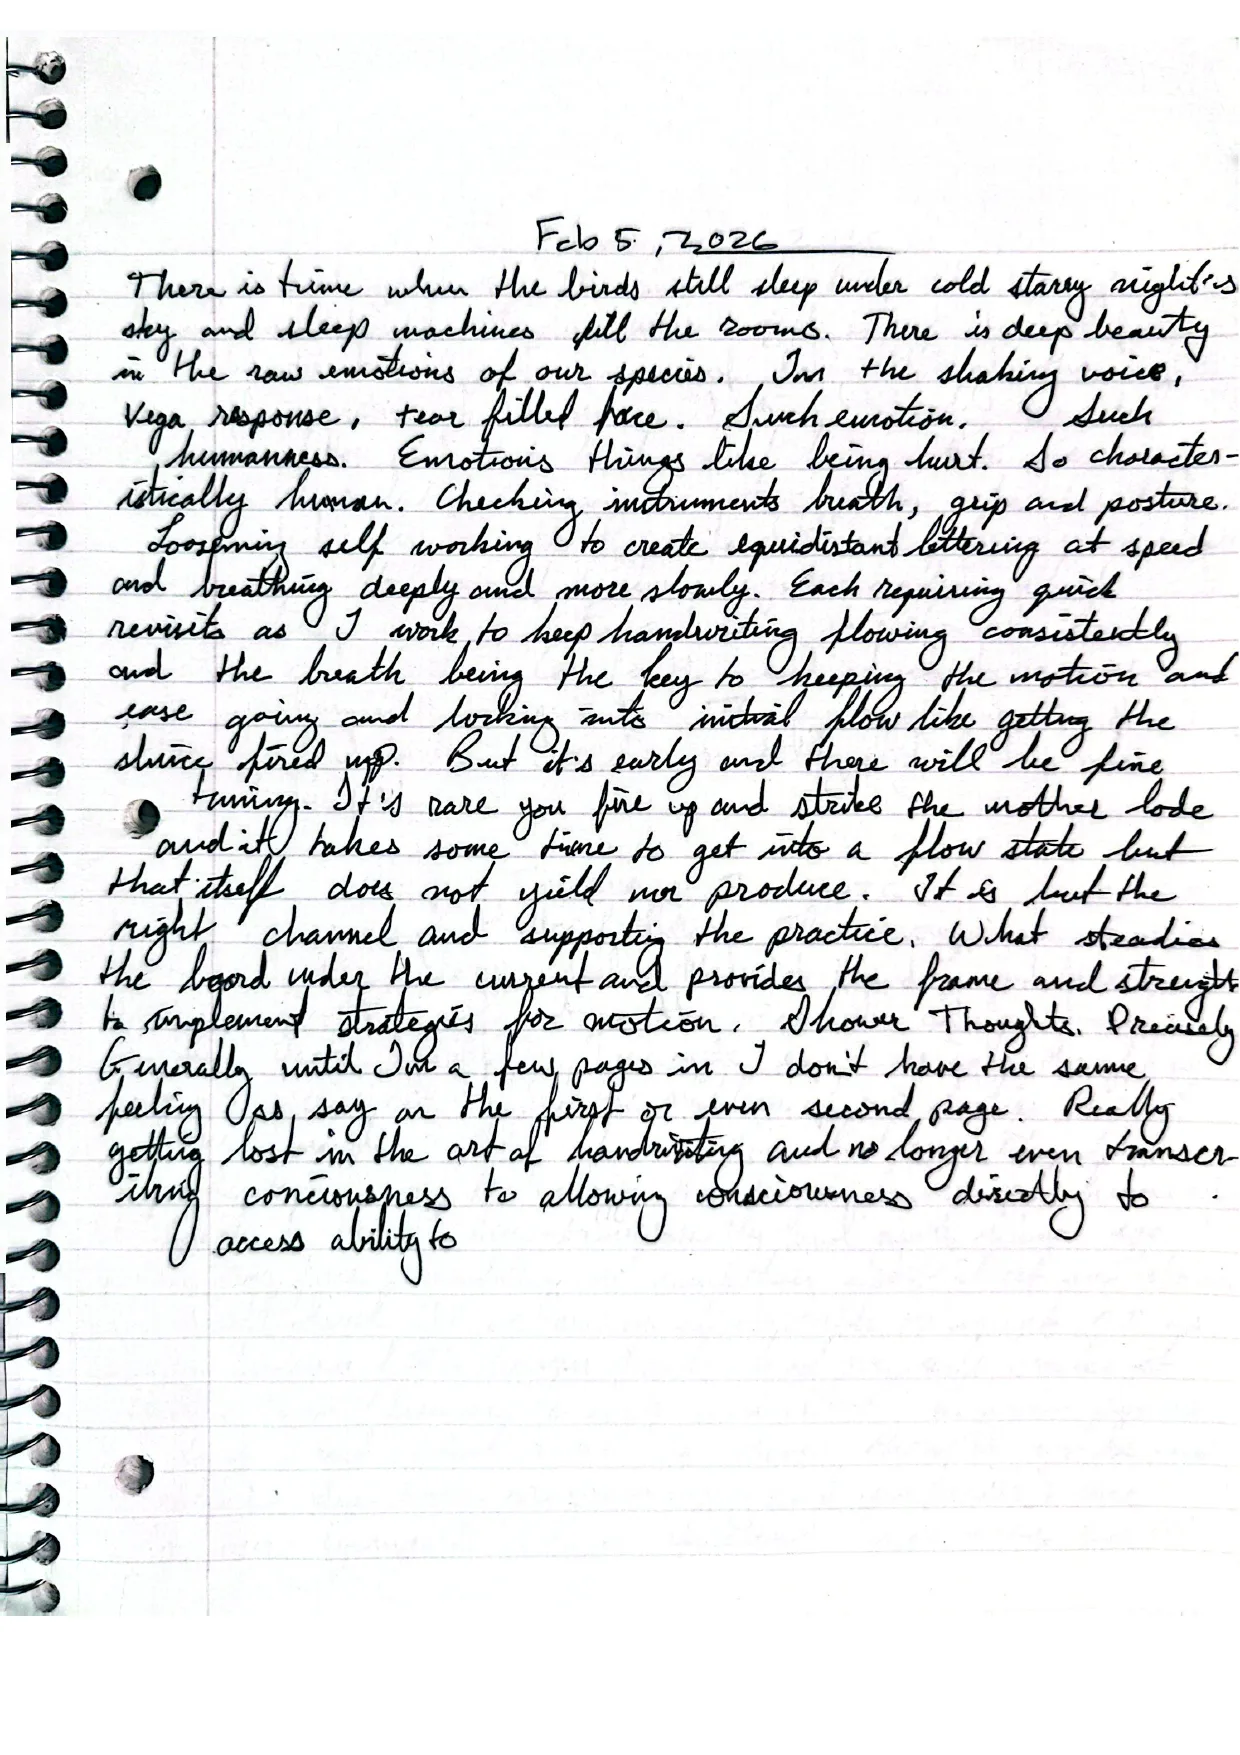 Feb 5, 2026
There is time when the birds still sleep under cold starry night's
sky and sleep machines fill the rooms. There is deep beauty
in the raw emotions of our species. In the shaking voice,
Vega response, tear filled face. Such emotion. Such
humanness. Emotions things like being hurt. So character-
istically human. Checking instruments breath, grip and posture.
Loosening self working to create equidistant lettering at speed
and breathing deeply and more slowly. Each repairing quick
revisits as I work to keep handwriting flowing consistently
and the breath being the key to keeping the motion and
ease going and locking into initial flow like getting the
sluice fired up. But it's early and there will be fine
tuning. It's rare you fire up and strike the mother lode
and it takes some time to get into a flow state but
that itself does not yield nor produce. It is but the
right channel and supporting the practice. What steadies
the board under the current and provides the frame and strength
to implement strategies for motion. Shower Thoughts. Precisely
Generally until I'm a few pages in I don't have the same
feeling as say on the first or even second page. Really
getting lost in the art of handwriting and no longer even transcr-
ibing conciousness to allowing consciousness directly to
access ability to